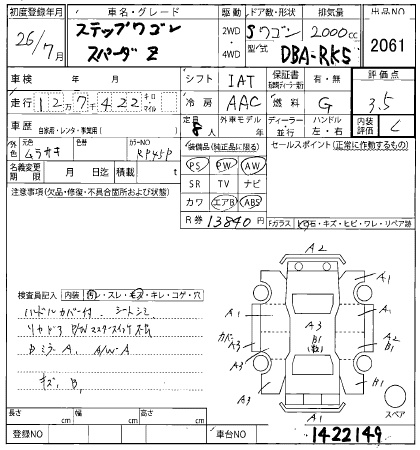 初度登録年月 車名・グレード 駆動 ドア数・形状 排気量 出品NO
26/7月 ステップワゴン スパーダ Z 2WD・4WD 5 ワゴン 2000cc 2061
型式 DBA-RK5
車検 年 月 シフト IAT 保証書 有・無 評価点
走行 12万7千422 キロ・マイル 冷房 AAC 燃料 G 3.5
車歴 自家用・レンタ・事業用( ) 定員 8人 外車モデル 年 ディーラー・並行 ハンドル 左・右 内装評価 C
外装色 元色 ムラサキ 色替 カラーNO RP45P 装備品(純正品に限る) セールスポイント(正常に作動するもの)
名義変更期限 月 日迄 積載 t PS PW AW
注意事項(欠品・修復・不具合箇所および状態) SR TV ナビ
カワ エアB ABS
R券 13840円 Fガラス 石・キズ・ヒビ・ワレ・リペア跡
A2
検査員記入 内装 汚レ・スレ・キズ・キレ・コゲ・穴 A1 A1
ハンドルカバー付 シートシミ A1 A3 A1
カバー A3 B1 A2 B1
Bミラー A1 A/W-A A3
キズ B1 A3 B1
A3 スペア
長さ cm 幅 cm 高さ cm A1
登録NO 車台NO 1422149